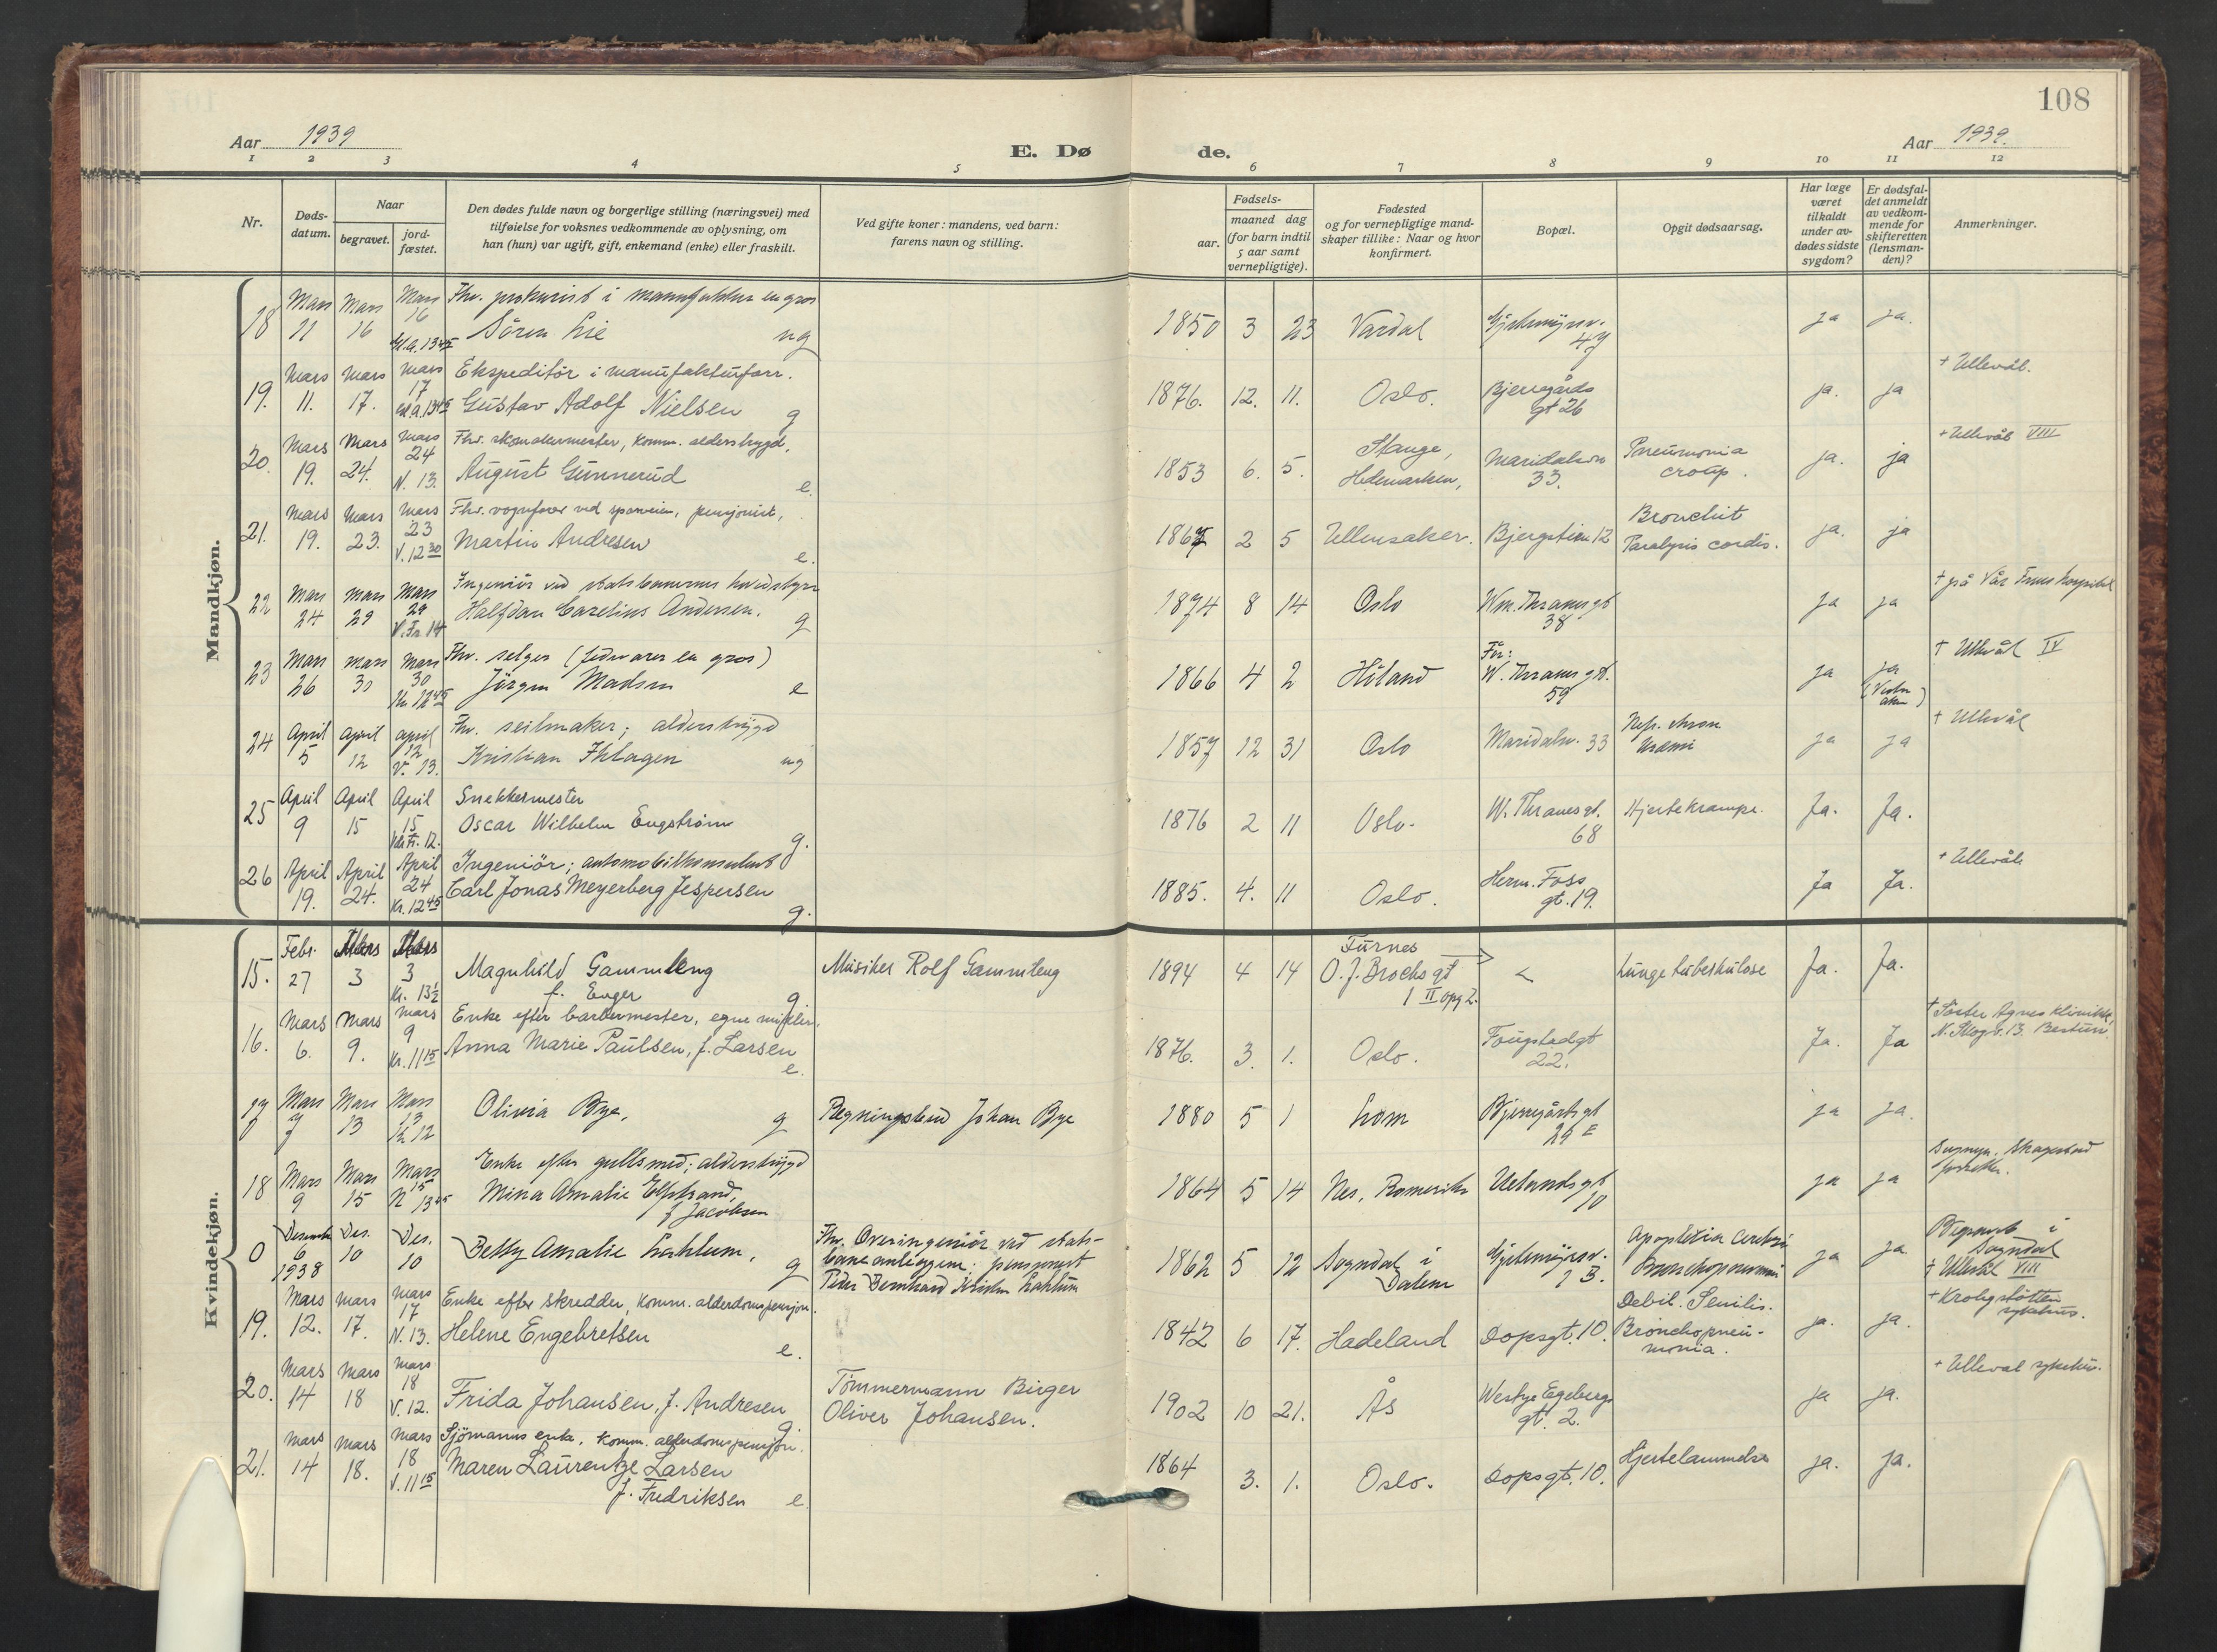 108
Aar 1939
E. Dø
de.
Aar 1939.
1 2 3 4 5 6 7 8 9 10 11 12
Nr.
Døds-
datum.
Naar
begravet.
jord-
fæstet.
Den dødes fulde navn og borgerlige stilling (næringsvei) med
tilføielse for voksnes vedkommende av oplysning, om
han (hun) var ugift, gift, enkemand (enke) eller fraskilt.
Ved gifte koner: mandens, ved barn:
farens navn og stilling.
Fødsels-
aar.
maaned dag
(for barn indtil
5 aar samt
vernepligtige).
Fødested
og for vernepligtige mand-
skaper tillike: Naar og hvor
konfirmert.
Bopæl.
Opgit dødsaarsag.
Har læge
været
tilkaldt
under av-
dødes sidste
sygdom?
Er dødsfal-
det anmeldt
av vedkom-
mende for
skifteretten
(lensman-
den)?
Anmerkninger.
Mandkjøn.
18 Mars 11 Mars 16 Mars 16 Gl.a. 13 45
Fhv. prokurist i manufaktur en gros
Sören Lie ug
1850 3 23 Vardal 47 ja ja.
19. Mars 11. Mars 17. Mars 17 Gl.a. 13 45
Ekspeditör i manufakturforr.
Gustav Adolf Nielsen g
1876. 12. 11. Oslo. Bjerregårds gt 26 ja. ja + Ullevål.
20. Mars 19. Mars 24. Mars 24 N. 13.
Fhv. skomakermester, komm. alderstrygd,
August Gunnerud e.
1853 6. 5. Stange, Hedemarken, Maridalsvn 33. Pneumonia croup. ja. ja + Ullevål VIII
21. Mars 19. Mars 23. Mars 23 V. 12 30
Fhv. vognfører ved sporveien, pensjonist,
Martin Andresen e.
1867 2 5 Ullensaker. Bjergstien 12 Bronchit Paralysis cordis. ja. ja
22 Mars 24 Mars 29 Mars 29 V. Fr. 14
Ingeniör ved statsbanernes hovedstyre
Halfdan Carelius Andersen. g
1874 8 14 Oslo Wm. Thranes gt 38 ja ja + på Vår Frues hospital
23 Mars 26 Mars 30 Mars 30 12 45
Fhv. selger (fedevarer en gros)
Jörgen Madsen e
1866 4 2 Höland Før: W. Thranes gt. 59 ja ja + Ullevål IV
24 April 5 April 12 April 12 V. 13.
Fhv. seilmaker; alderstrygd
Kristian Ihlagen ug
1857 12 31 Oslo Maridalsv. 33 Nefr. chron Uræmi ja ja + Ullevål
25 April 9 April 15 April 15 Vår Fr. 12.
Snekkermester
Oscar Wilhelm Engström g.
1876 2 11 Oslo. W. Thranes gt. 68 Hjertekrampe. Ja. Ja.
26 April 19. April 24. April 24 Kr. 12 45
Ingeniör; automobilkonsulent
Carl Jonas Meyerberg Jespersen g.
1885. 4. 11 Oslo. Herm. Foss gt. 19. Ja Ja. + Ullevål
Kvindekjøn.
15. Febr. 27 Mars 3 Mars 3 Kr. 13½
Magnhild Gammleng
f. Enger g.
Musiker Rolf Gammleng
1894 4 14 Furnes O. J. Brochs gt 1 II opg 2. Lungetuberkulose Ja. Ja.
16. Mars 6. Mars 9. Mars 9 Kr. 11 15
Enke efter barbermester, egne midler,
Anna Marie Paulsen, f. Larsen e.
1876. 3. 1. Oslo. Fougstadgt 22. Ja. Ja + Söster Agnes klinikk, N. Skogv. 13. Bestum.
17 Mars 7 Mars 13 Mars 13 12
Olivia Bye, g
Regningsbud Johan Bye
1880 5 1 Lom Bjerregårds gt 29 E ja ja.
18 Mars 9 Mars 15 Mars 15 N 13 45
Enke efter gullsmed; alderstrygd
Mina Amalie Elfstrand,
f Jacobsen
1864 5 14 Nes, Romerike Uelands gt 10 ja ja
0 Desember 6 1938 Des. 10 Des. 10
Betty Amalie Lahlum, g
Fhv. Overingeniör ved stats-
baneanleggene; pensjonert
Peder Bernhard Kristen Lahlum
1862 5 12 Sogndal i Dalene 2 B. Apoplexia cerebri Bronchopneumoni ja ja Begravet i Sogndal + Ullevål VIII
19. Mars 12. Mars 17. Mars 17 N. 13.
Enke efter skredder, komm. alderdomspensjon.
Helene Engebretsen e.
1842 6 17. Hadeland Dopsgt. 10. Debil. Senilis. Bronchopneu- monia. ja. ja. + Krohgstötten sykehus.
20. Mars 14 Mars 18 Mars 18 V. 12.
Frida Johansen, f. Andresen g.
Tömmermann Birger
Oliver Johansen.
1902 10 21. Ås Westye Egeberg gt. 2. ja ja. + Ulleval sykehus.
21. Mars 14 Mars 18. Mars 18 V. 11 15
Sjömanns enke, komm. alderdomspensjon.
Maren Laurentze Larsen
f. Fredriksen e
1864 3. 1. Oslo. Dopsgt. 10. Hjertelammelse ja. ja.